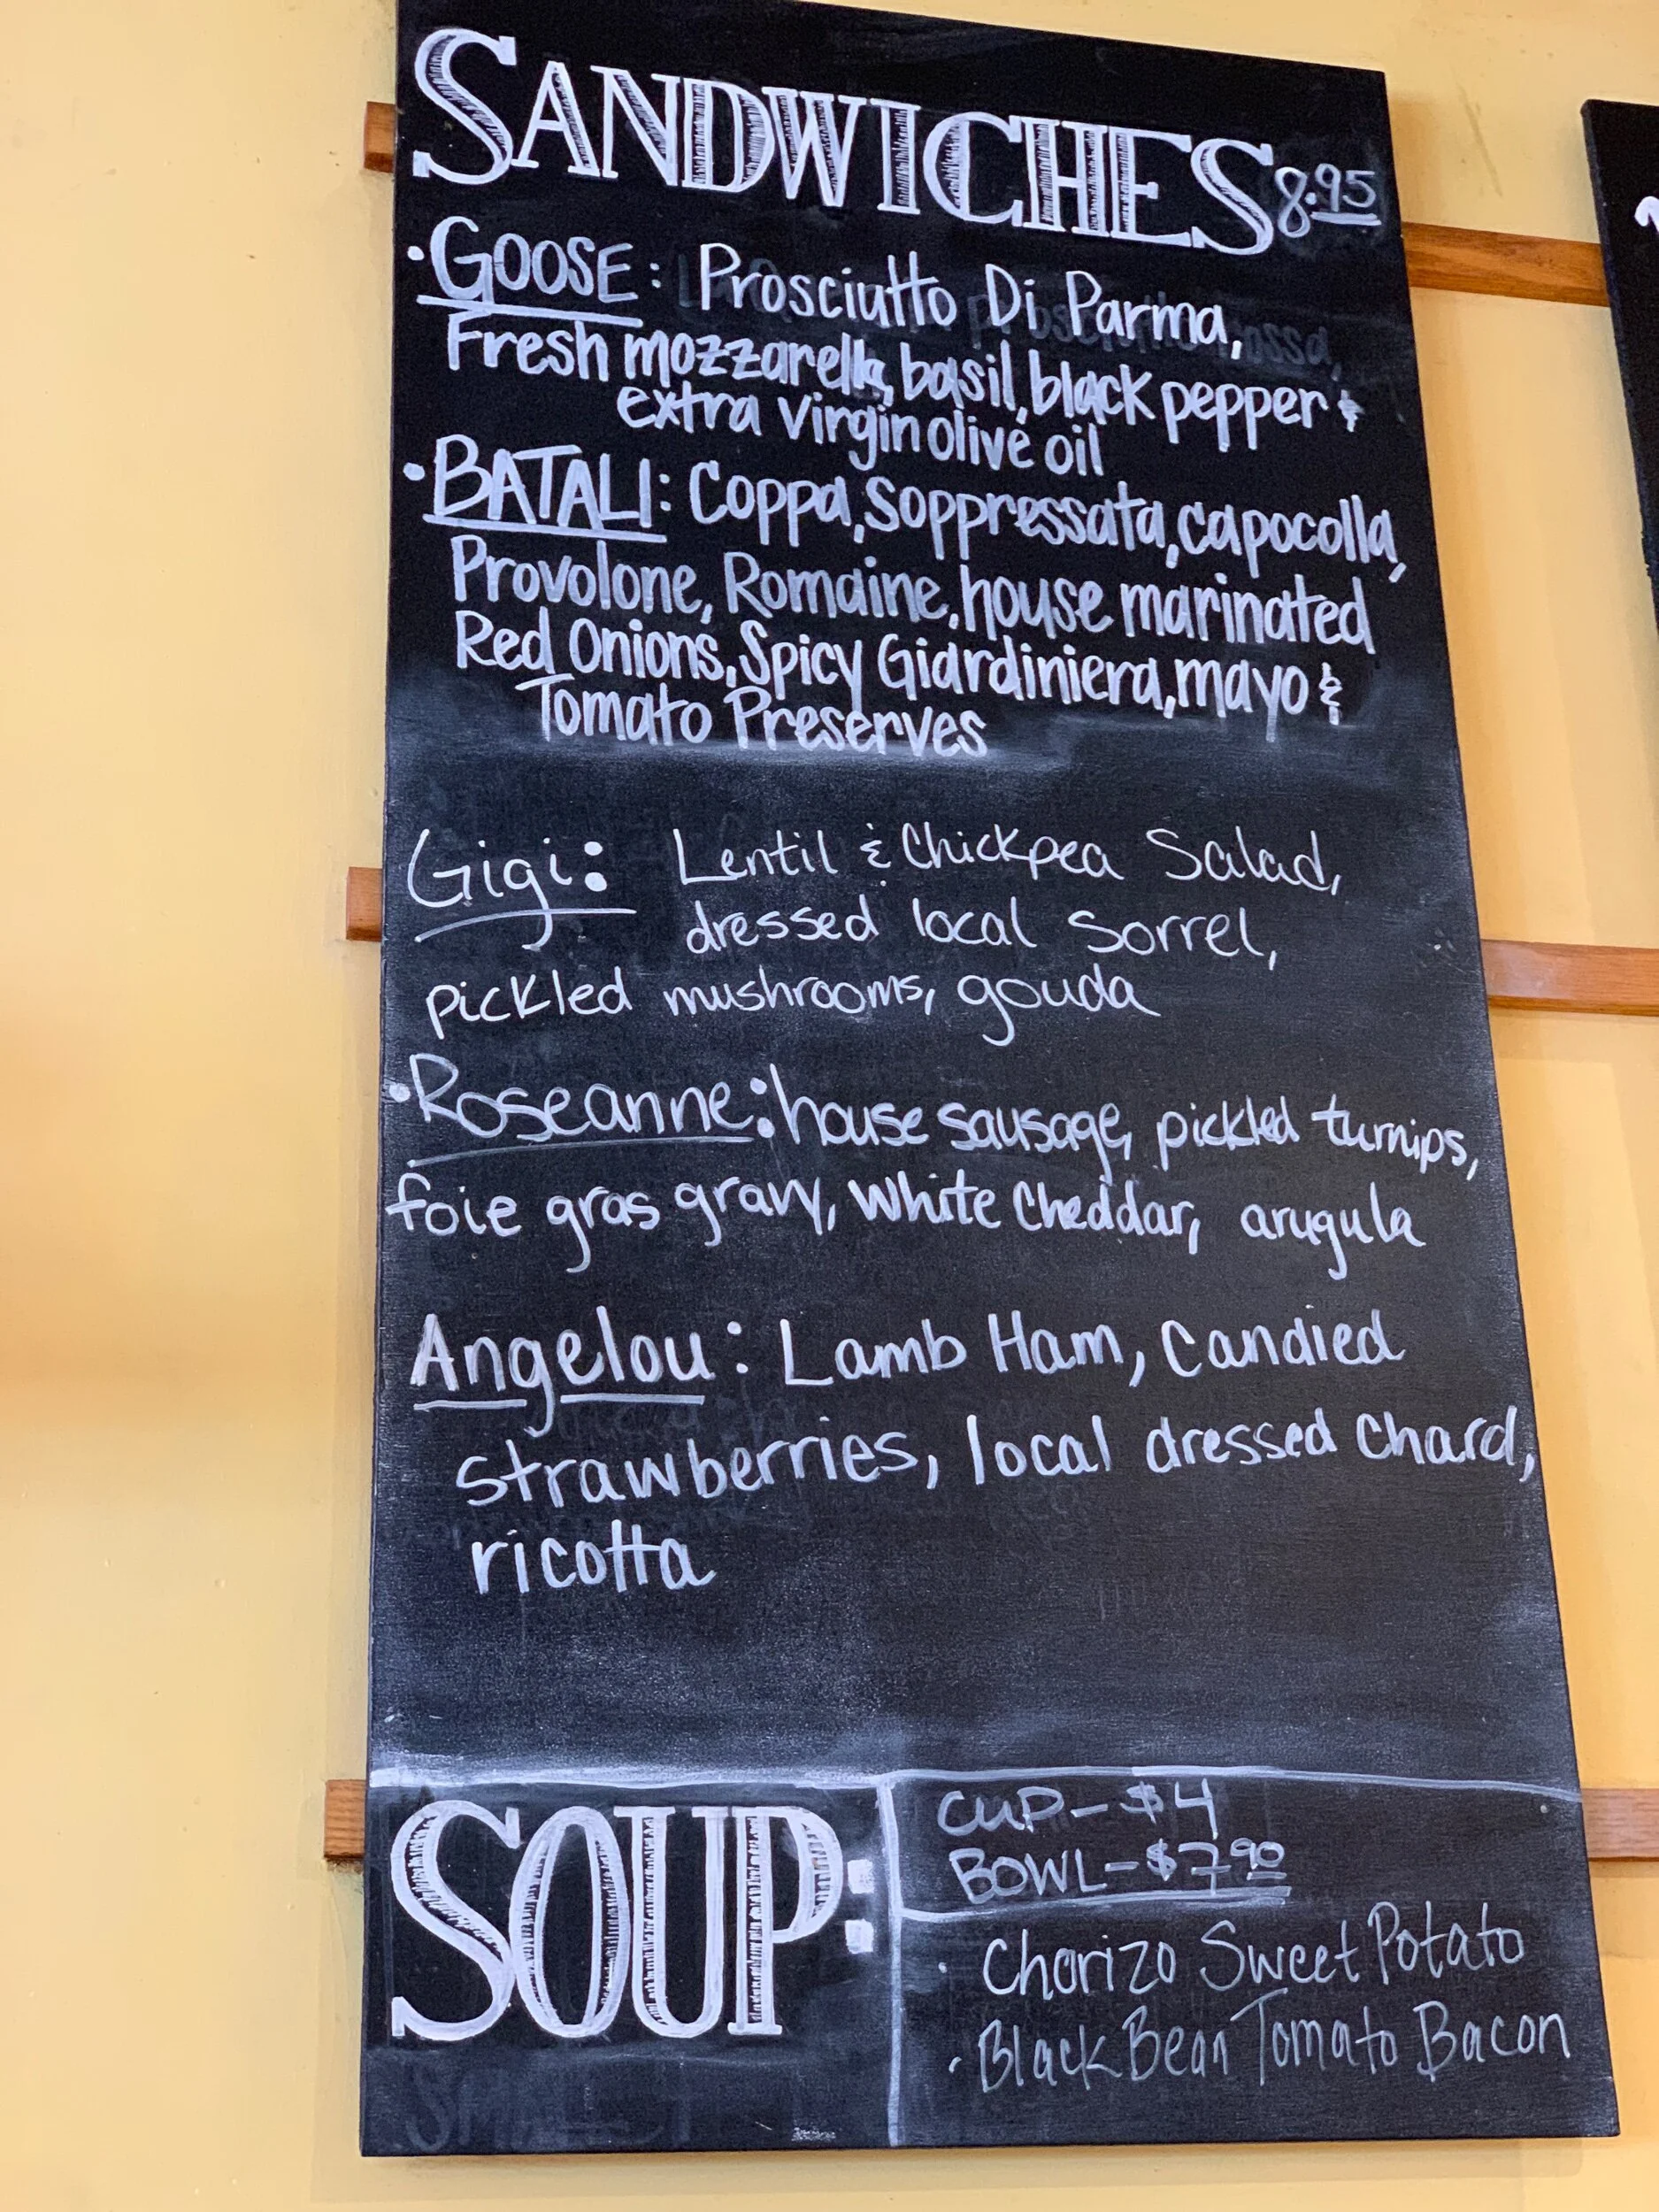 SANDWICHES 8.95
• GOOSE: Prosciutto Di Parma,
Fresh mozzarella, basil, black pepper &
extra virgin olive oil
• BATALI: Coppa, Soppressata, capocolla,
Provolone, Romaine, house marinated
Red Onions, Spicy Giardiniera, mayo &
Tomato Preserves
Gigi: Lentil & Chickpea Salad,
dressed local Sorrel,
pickled mushrooms, gouda
• Roseanne: house sausage, pickled turnips,
foie gras gravy, white cheddar, arugula
Angelou: Lamb Ham, Candied
strawberries, local dressed Chard,
ricotta
SOUP:
CUP - $4
BOWL - $7.90
• Chorizo Sweet Potato
• Black Bean Tomato Bacon